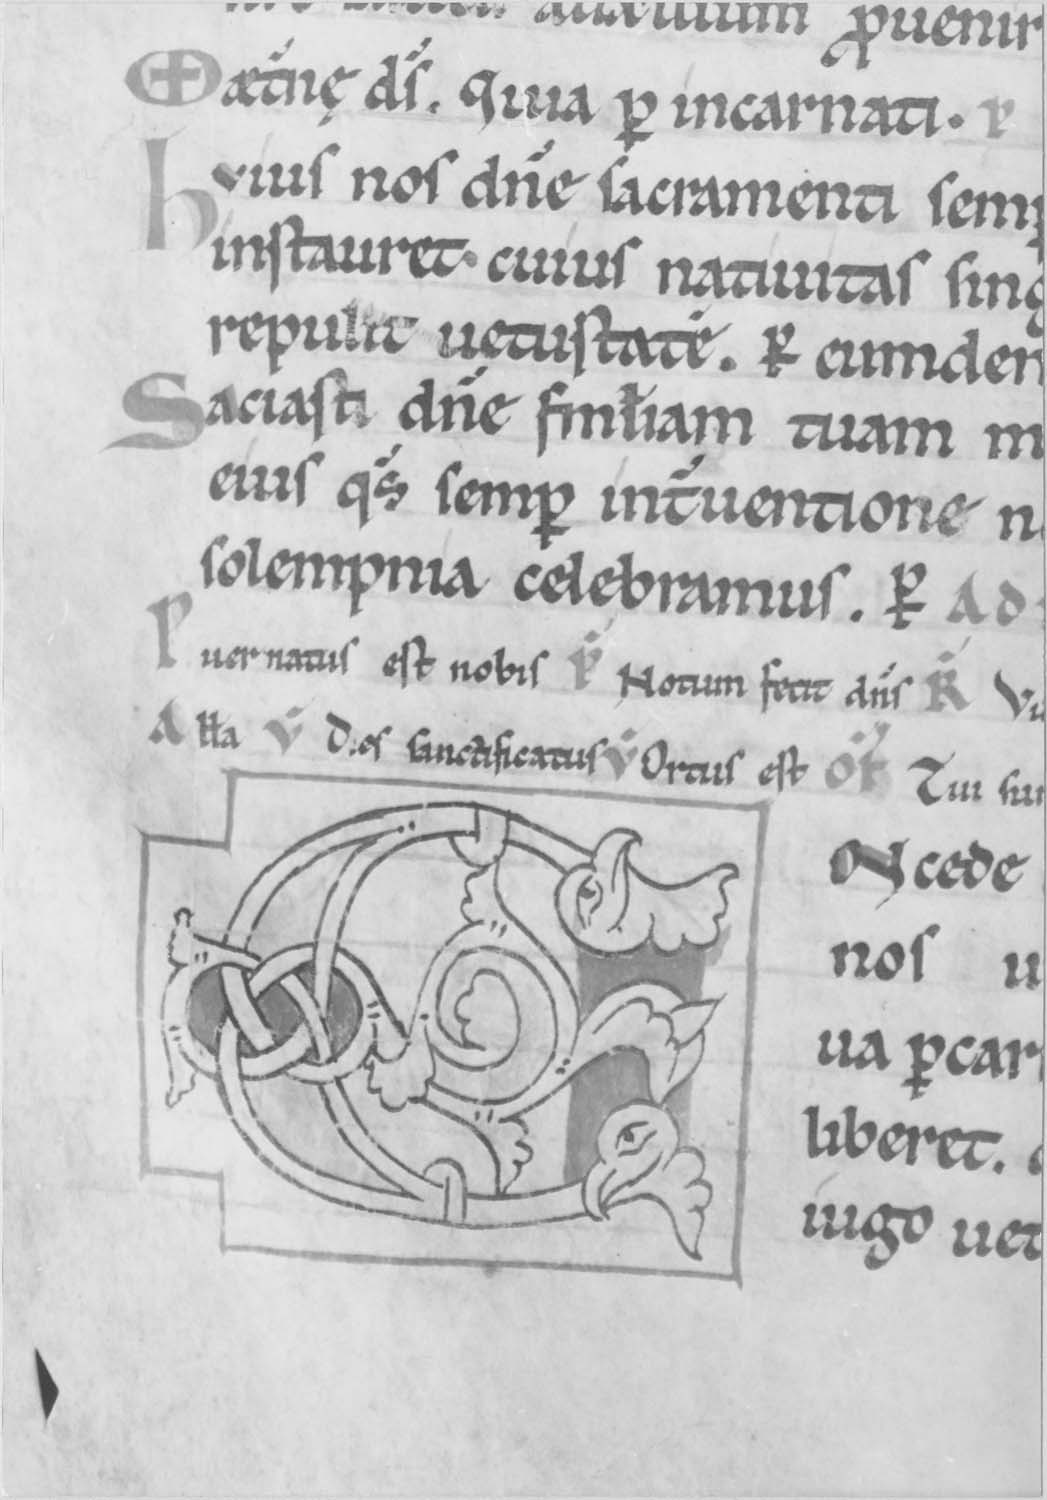 ꝓuenir
æt͛nę dſ̃. Quia ꝑ incarnati. P
huius nos dñe sacramenti semꝑ
instauret. cuius natiuitas sing
repulit uetustatẽ. P eumdem
Saciasti dñe fmłiam tuam m
eius qs̃ semꝑ int͛uentione n
solempnia celebramus. P AD
Puer natus est nobis P̃ Notum fecit dñs R̃ Vi
Alła ṽ Dies sanctificatus ṽ Ortus est Of̃ Tui sun
C ONcede
nos u
ua ꝑ car
liberet.
iugo uet